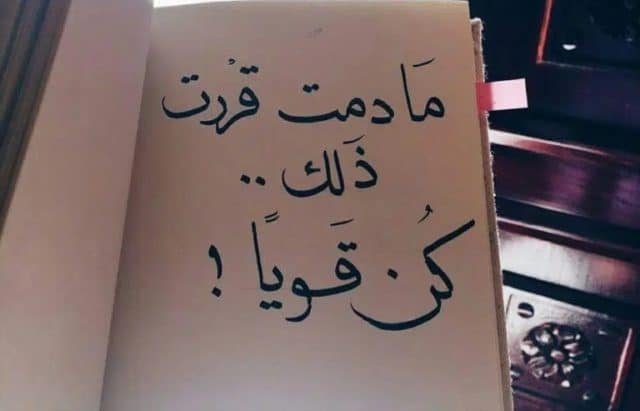 مَا دمت قرْرت
ذَلك ..
كُن قَوياً !